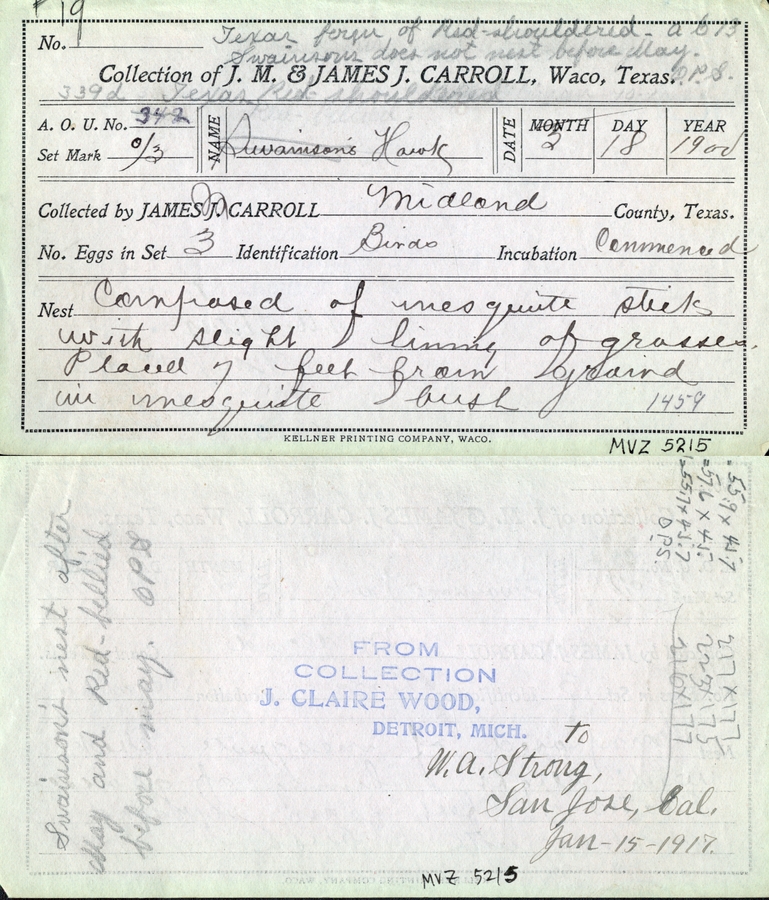 F19
No.
Texas form of Red-shouldered - a
Swainsons does not nest before May.
Collection of J. M. & JAMES J. CARROLL, Waco, Texas. O.P.S.
339d Texas Red-shouldered
A. O. U. No. 342
NAME
Swainson's Hawk
DATE
MONTH DAY YEAR
Set Mark 0/3
3 18 1900
Collected by JAMES J. CARROLL Midland County, Texas.
No. Eggs in Set 3 Identification Birds Incubation Commenced
Nest Composed of mesquite sticks
with slight lining of grasses.
Placed 7 feet from ground
in mesquite bush 1459
KELLNER PRINTING COMPANY, WACO.
MVZ 5215
Swainson's nest after
May and Red-bellied
before May. OPS
=55.9 x 43.7
=57.6 x 45.
=55.7 x 43.7
OPS
217 x 177
223 x 175
216 x 177
FROM
COLLECTION
J. CLAIRE WOOD,
DETROIT, MICH.
to
W.A. Strong,
San Jose, Cal.
Jan-15-1917.
MVZ 5215